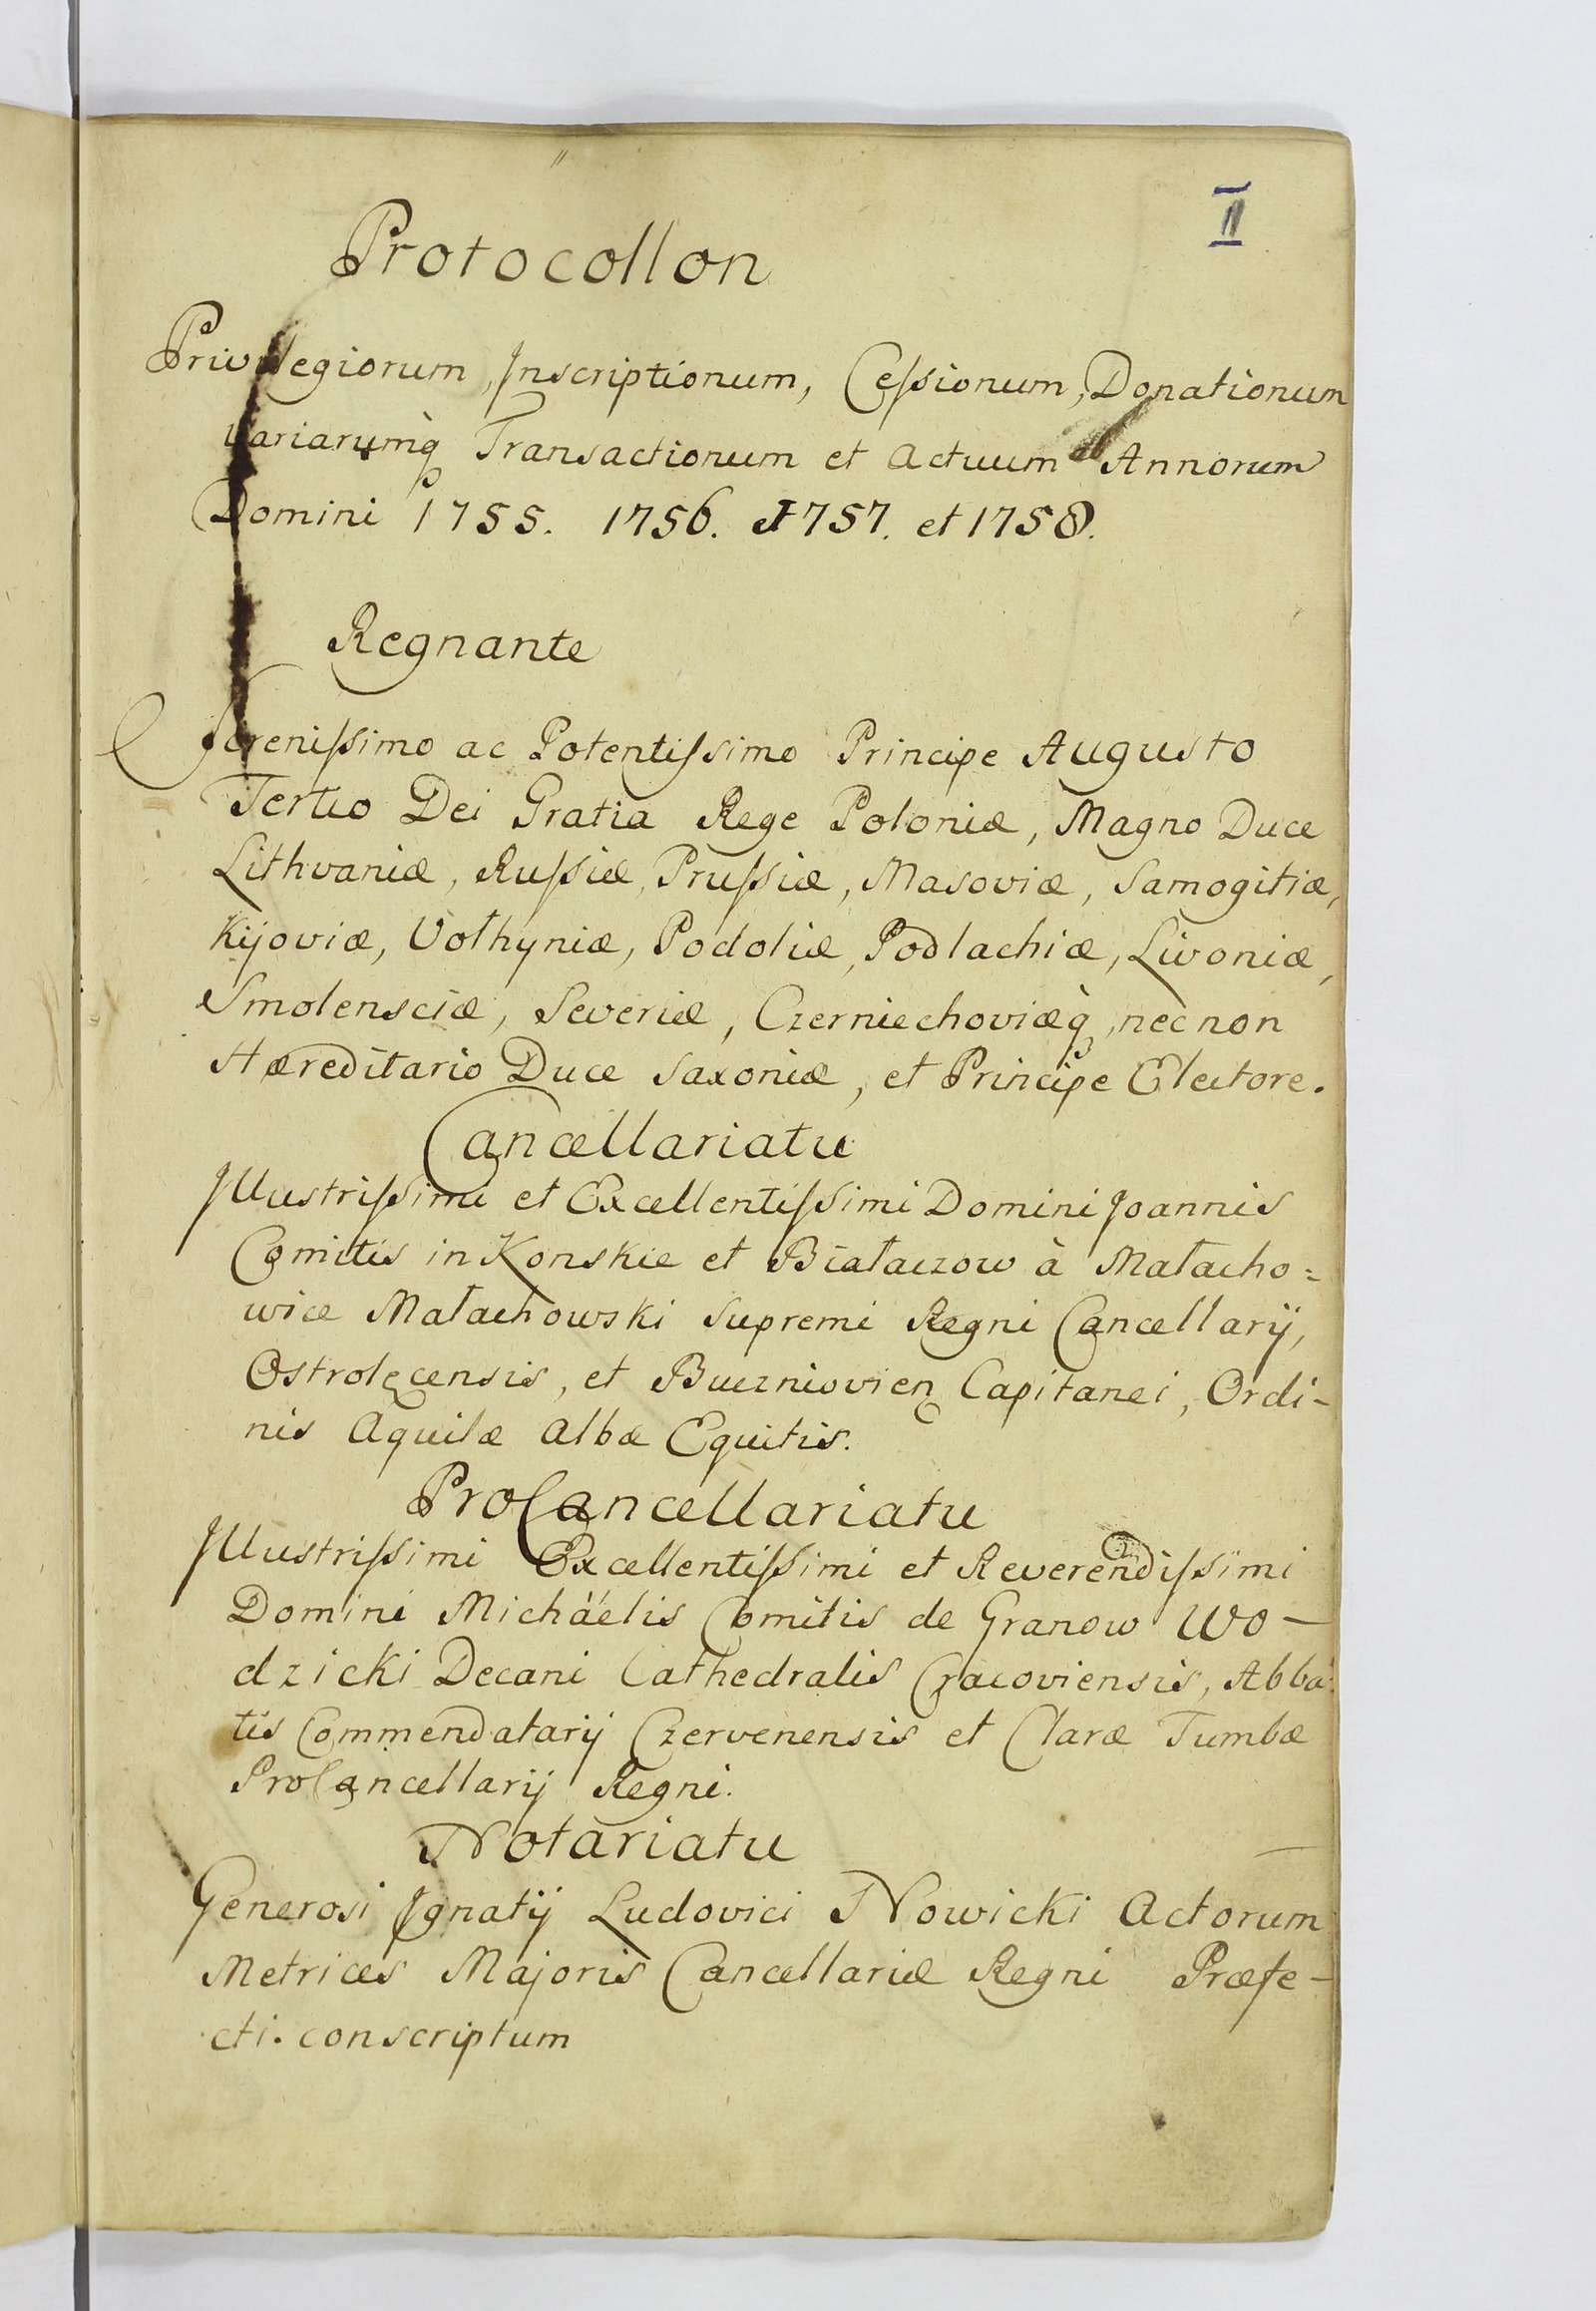 II
Protocollon
Privilegiorum, Inscriptionum, Cessionum, Donationum
variarumq̀ Transactionum et Actuum ab Annorum
Domini 1755. 1756. 1757. et 1758.
Regnante
Serenissimo ac Potentissimo Principe Augusto
Tertio Dei Gratia Rege Poloniæ, Magno Duce
Lithvaniæ, Russiæ, Prussiæ, Masoviæ, Samogitiæ,
Kijoviæ, Volhyniæ, Podoliæ, Podlachiæ, Livoniæ,
Smolensciæ, Severiæ, Czerniechoviæq̀, nec non
Hæreditario Duce Saxoniæ, et Principe Electore.
Cancellariatu
Illustrissimi et Excellentissimi Domini Joannis
Comitis in Konskie et Białaczow à Małacho=
wice Małachowski Supremi Regni Cancellarij,
Ostrolęcensis, et Buczniovien Capitanei, Ordi-
nis Aquilæ Albæ Equitis.
ProCancellariatu
Illustrissimi Excellentissimi et Reverendissimi
Domini Michäelis Comitis de Granow Wo-
dzicki Decani Cathedralis Cracoviensis, Abba-
tis Commendatarij Czervenensis et Claræ Tumbæ
ProCancellarij Regni.
Notariatu
Generosi Ignatij Ludovici Nowicki Actorum
Metrices Majoris Cancellariæ Regni Præfe-
cti. conscriptum